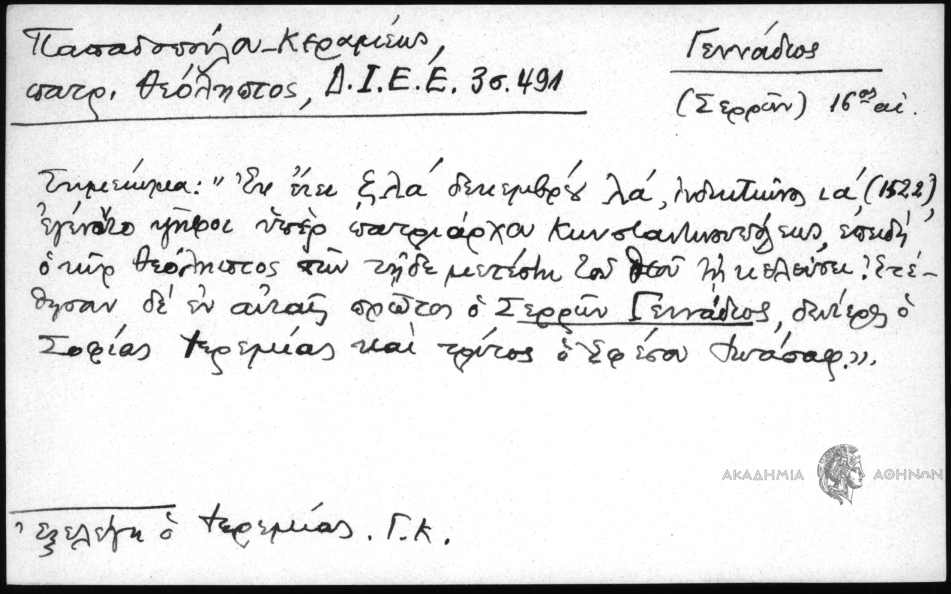 Παπαδοπούλου-Κεραμέως,
πατρ. Θεόληπτος, Δ.Ι.Ε.Ε. 3 σ. 491
Γεννάδιος
(Σερρῶν) 16ος αἰ.
Σημείωμα: "Ἐν ἔτει ζλα δεκεμβρίου λα, ἰνδικτιῶνος ια (1522)
ἐγένοντο ψῆφοι ὑπὲρ πατριάρχου Κωνσταντινουπόλεως, ἐπειδὴ
ὁ κὺρ Θεόληπτος τῶν τῇδε μετέστη τοῦ Θεοῦ τῇ κελεύσει. Ἐτέ-
θησαν δὲ ἐν αὐταῖς πρῶτος ὁ Σερρῶν Γεννάδιος, δεύτερος ὁ
Σοφίας Ἱερεμίας καὶ τρίτος ὁ Ἐφέσου Ἰωάσαφ.".
ΑΚΑΔΗΜΙΑ ΑΘΗΝΩΝ
Ἐξελέγη ὁ Ἱερεμίας. Γ.Κ.